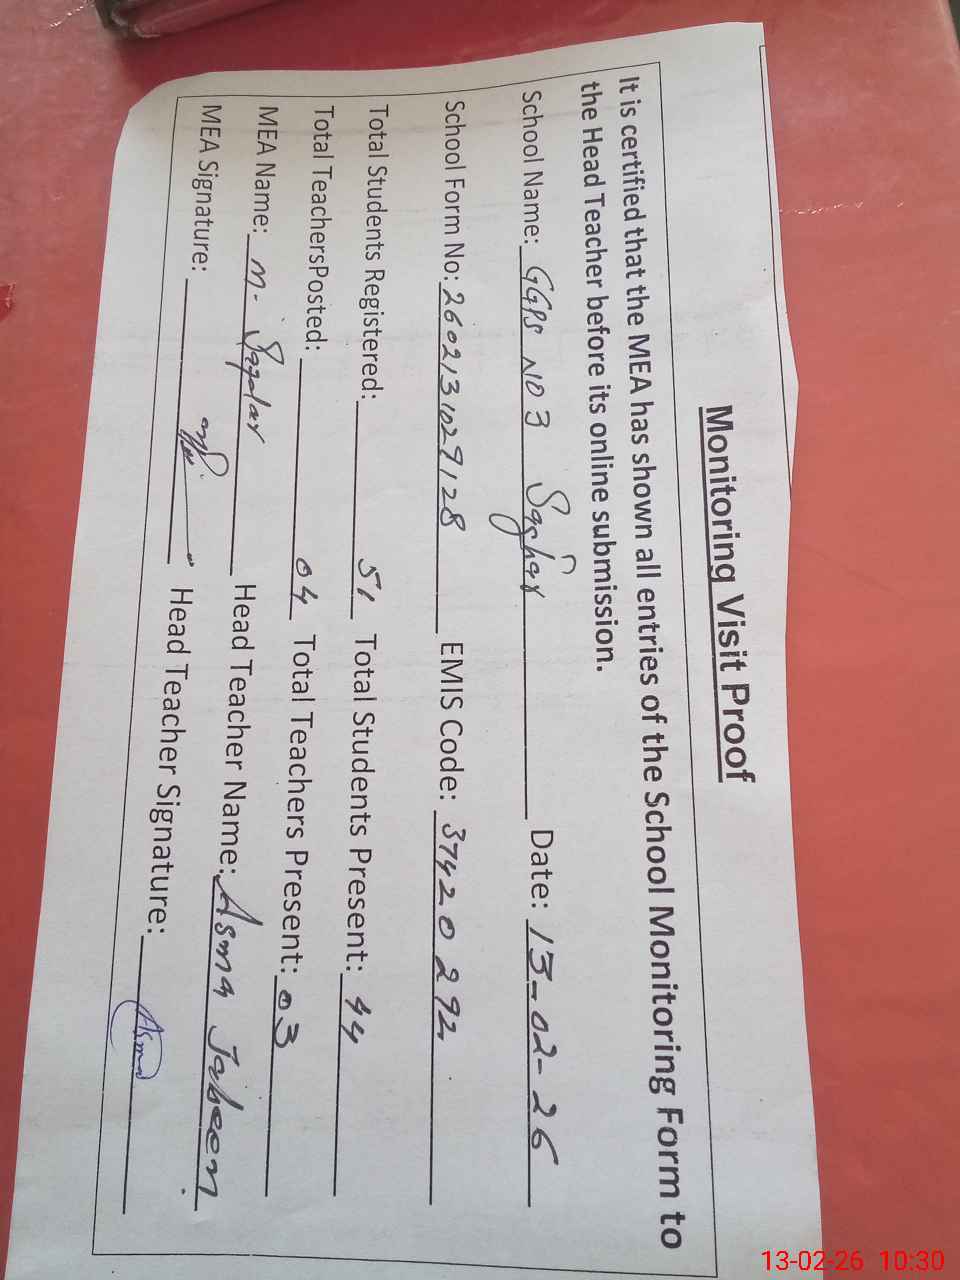 Monitoring Visit Proof
It is certified that the MEA has shown all entries of the School Monitoring Form to
the Head Teacher before its online submission.
School Name: GGPS NO 3 Date: 13-02-26
School Form No: 2602131029128 EMIS Code: 37420292
Total Students Registered: 51 Total Students Present: 44
Total TeachersPosted: 04 Total Teachers Present: 03
MEA Name: M. Head Teacher Name: Asma Jabeen
MEA Signature: Head Teacher Signature: Asma
13-02-26 10:30